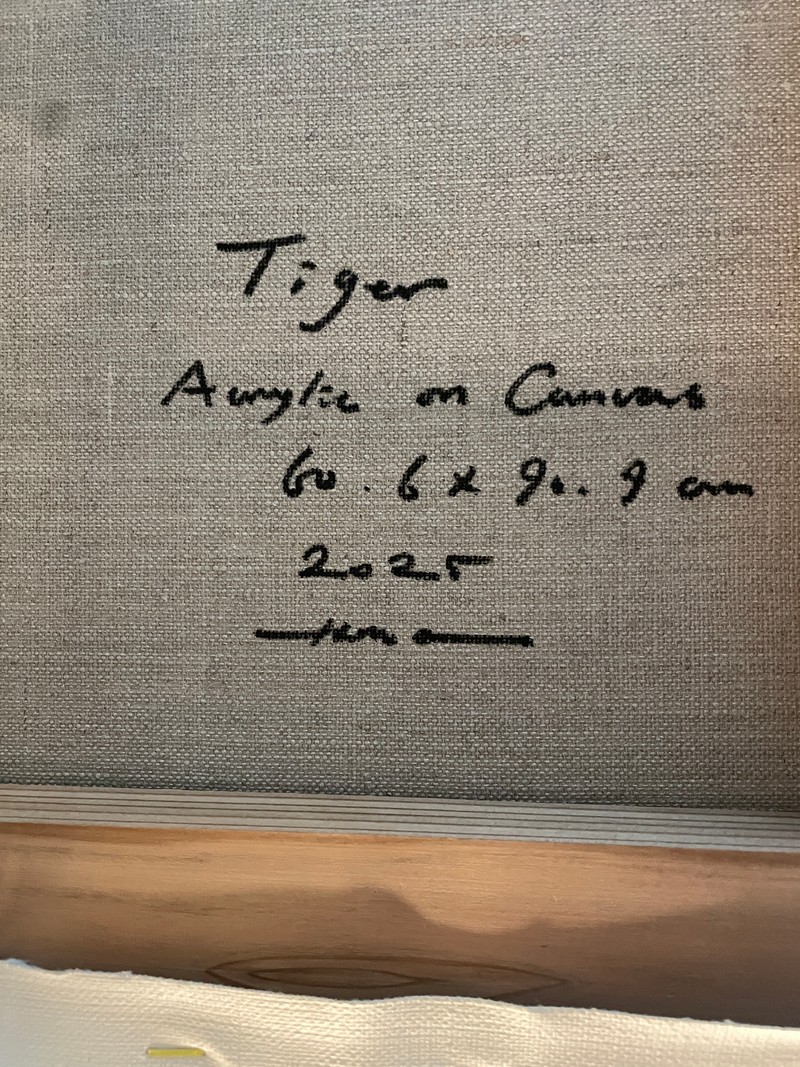 Tiger
Acrylic on Canvas
60.6 x 90.9 cm
2025